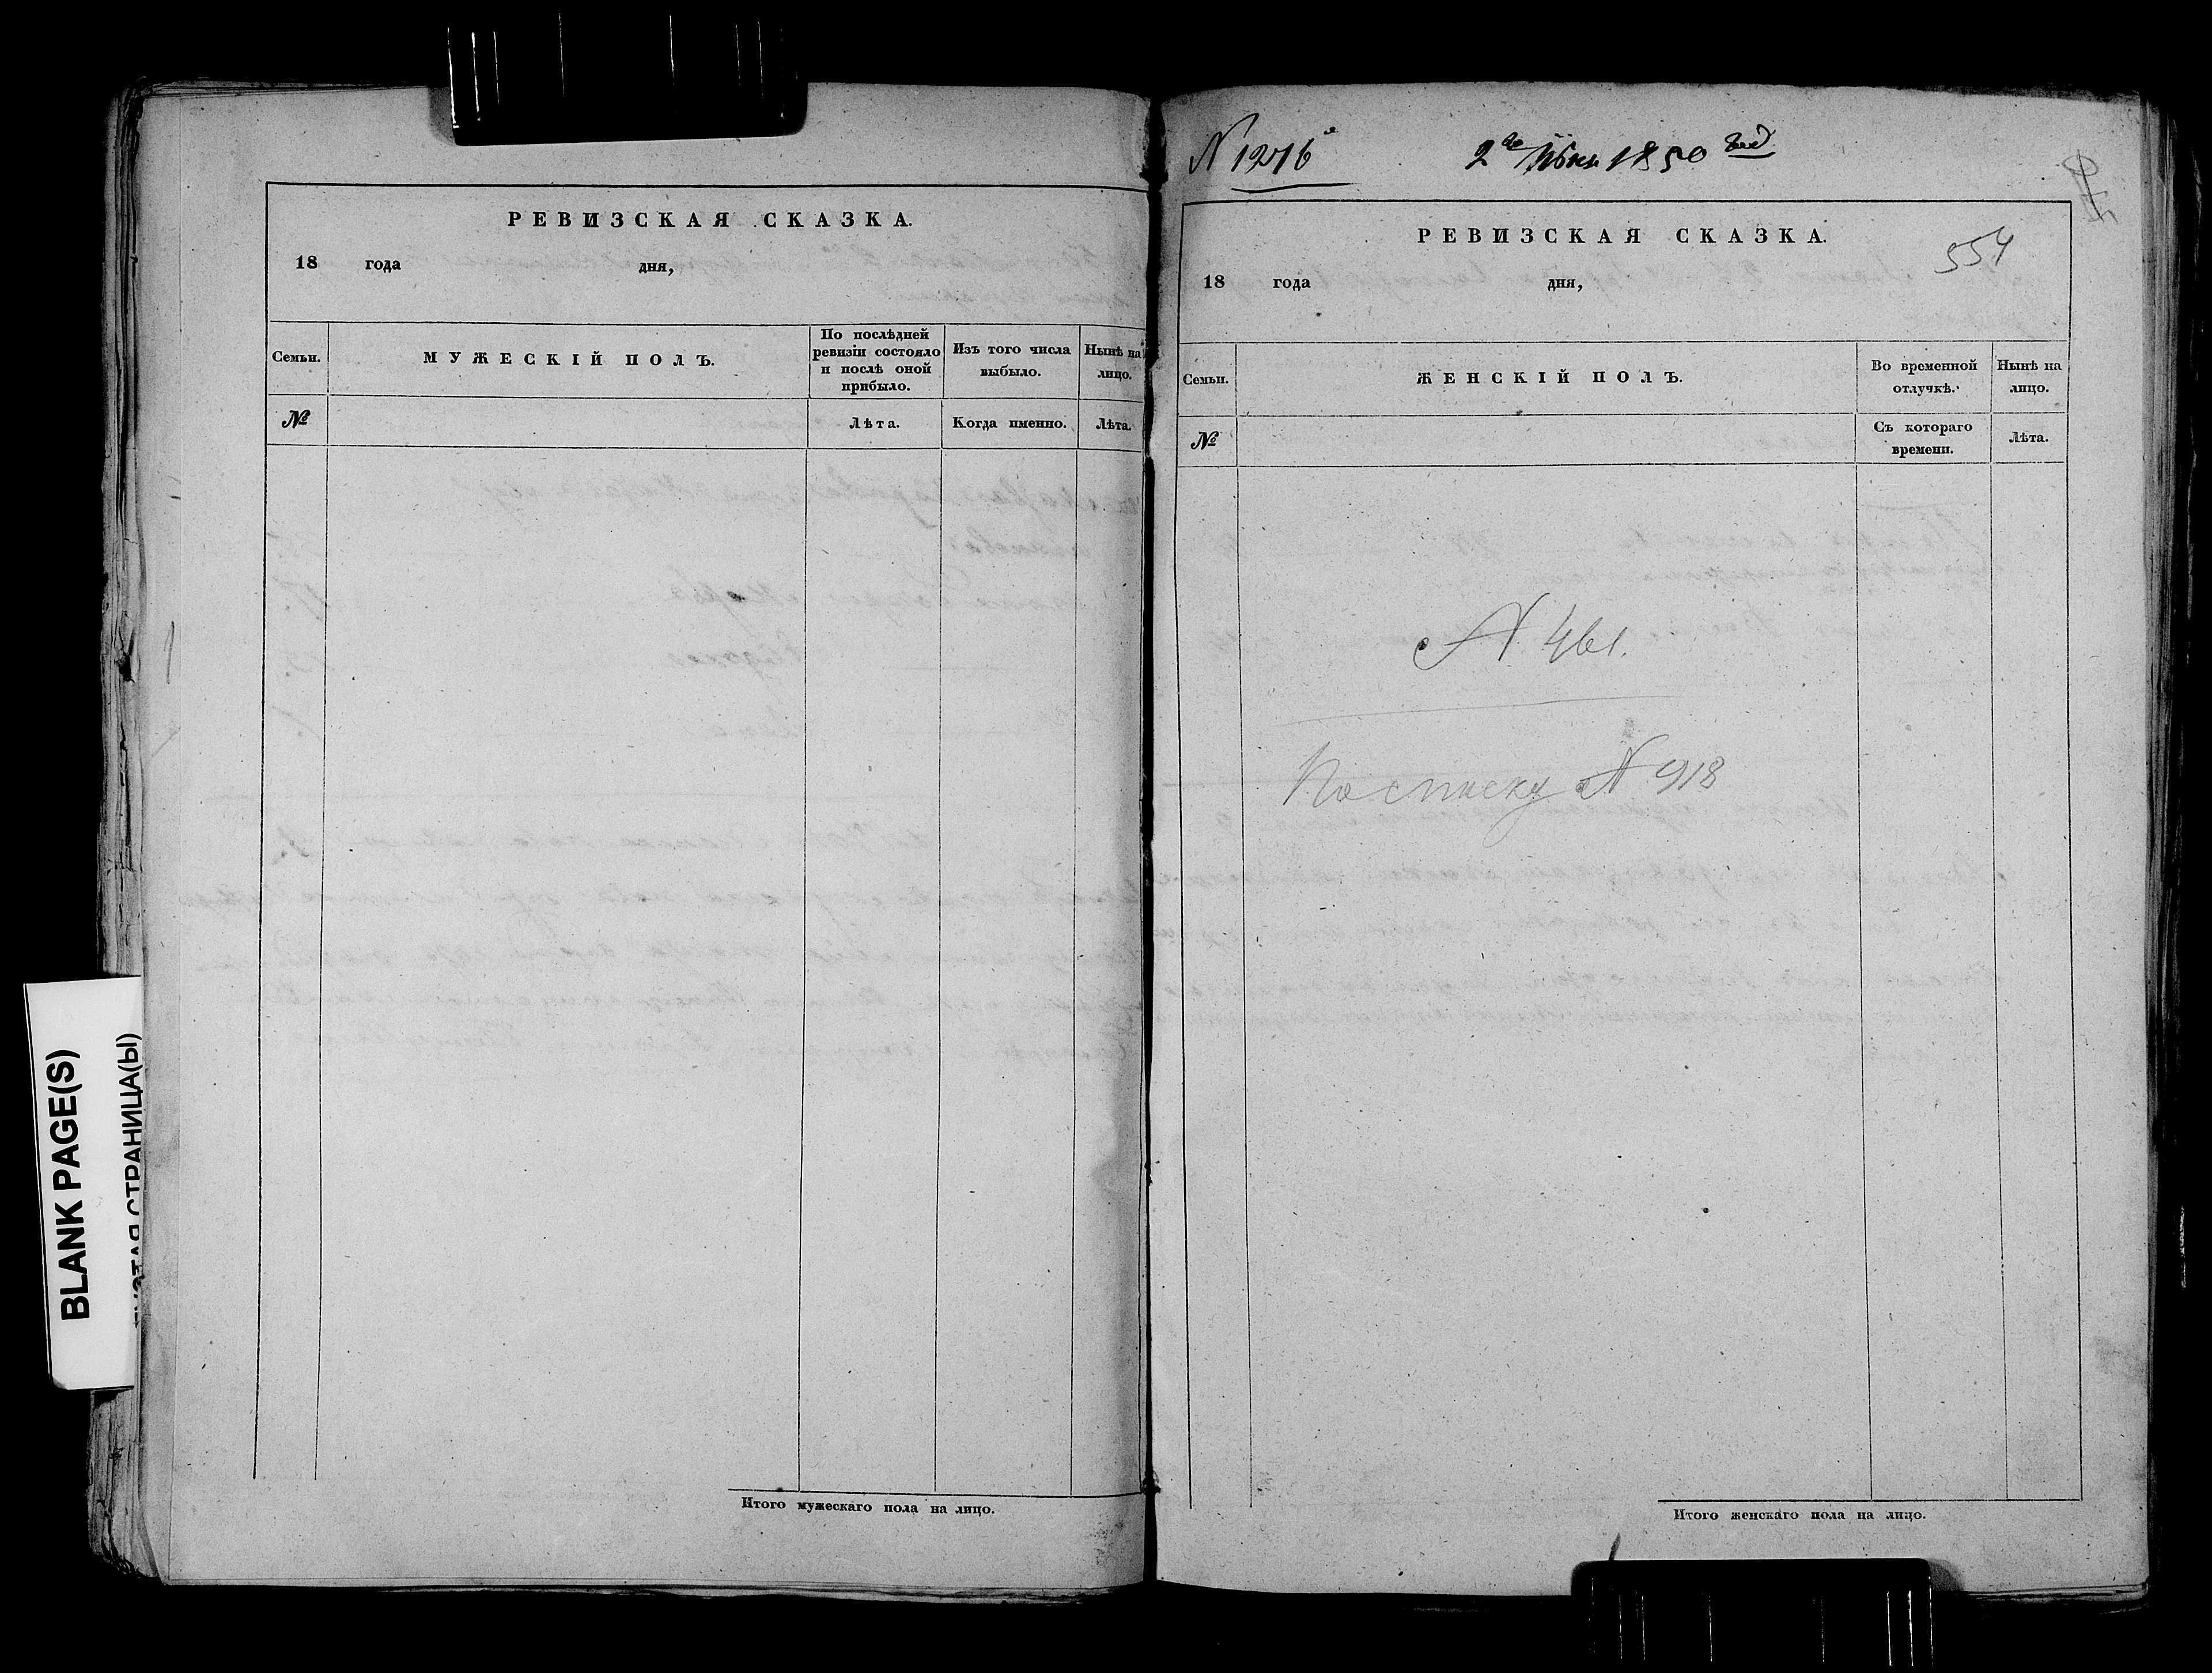 РЕВИЗСКАЯ СКАЗКА.
18 года дня,
Семьи. МУЖЕСКІЙ ПОЛЪ. По послѣдней ревизіи состояло и послѣ оной прибыло. Изъ того числа выбыло. Нынѣ на лицо.
№ Лѣта. Когда именно. Лѣта.
Итого мужескаго пола на лицо.
BLANK PAGE(S)
СТРАНИЦА(Ы)
N 1276
2го 1850
РЕВИЗСКАЯ СКАЗКА.
554
18 года дня,
Семьи. ЖЕНСКІЙ ПОЛЪ. Во временной отлучкѣ. Нынѣ на лицо.
№ Съ котораго времени. Лѣта.
N 461.
По списку N 918
Итого женскаго пола на лицо.